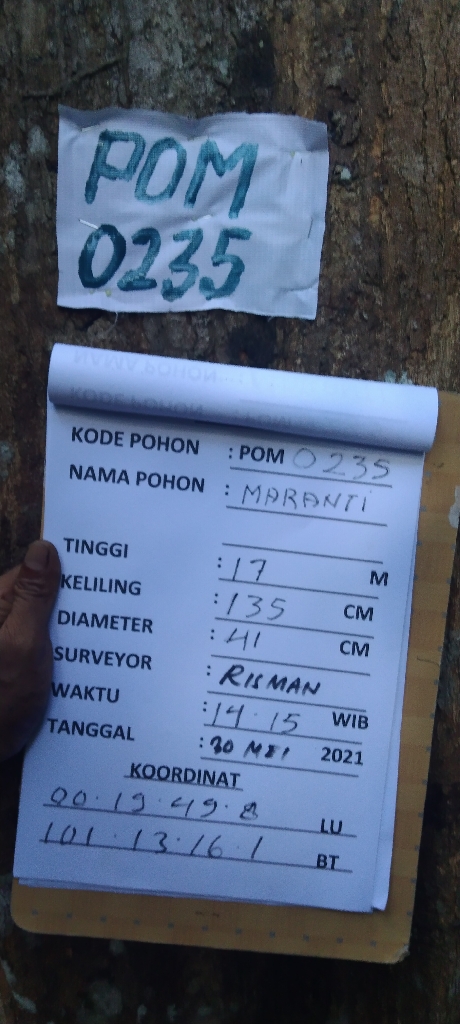 POM
0235
KODE POHON : POM 0235
NAMA POHON : MARANTI
TINGGI : 17 M
KELILING : 135 CM
DIAMETER : 41 CM
SURVEYOR : RISMAN
WAKTU : 14.15 WIB
TANGGAL : 30 MEI 2021
KOORDINAT
00.19.49.8 LU
101.13.16.1 BT